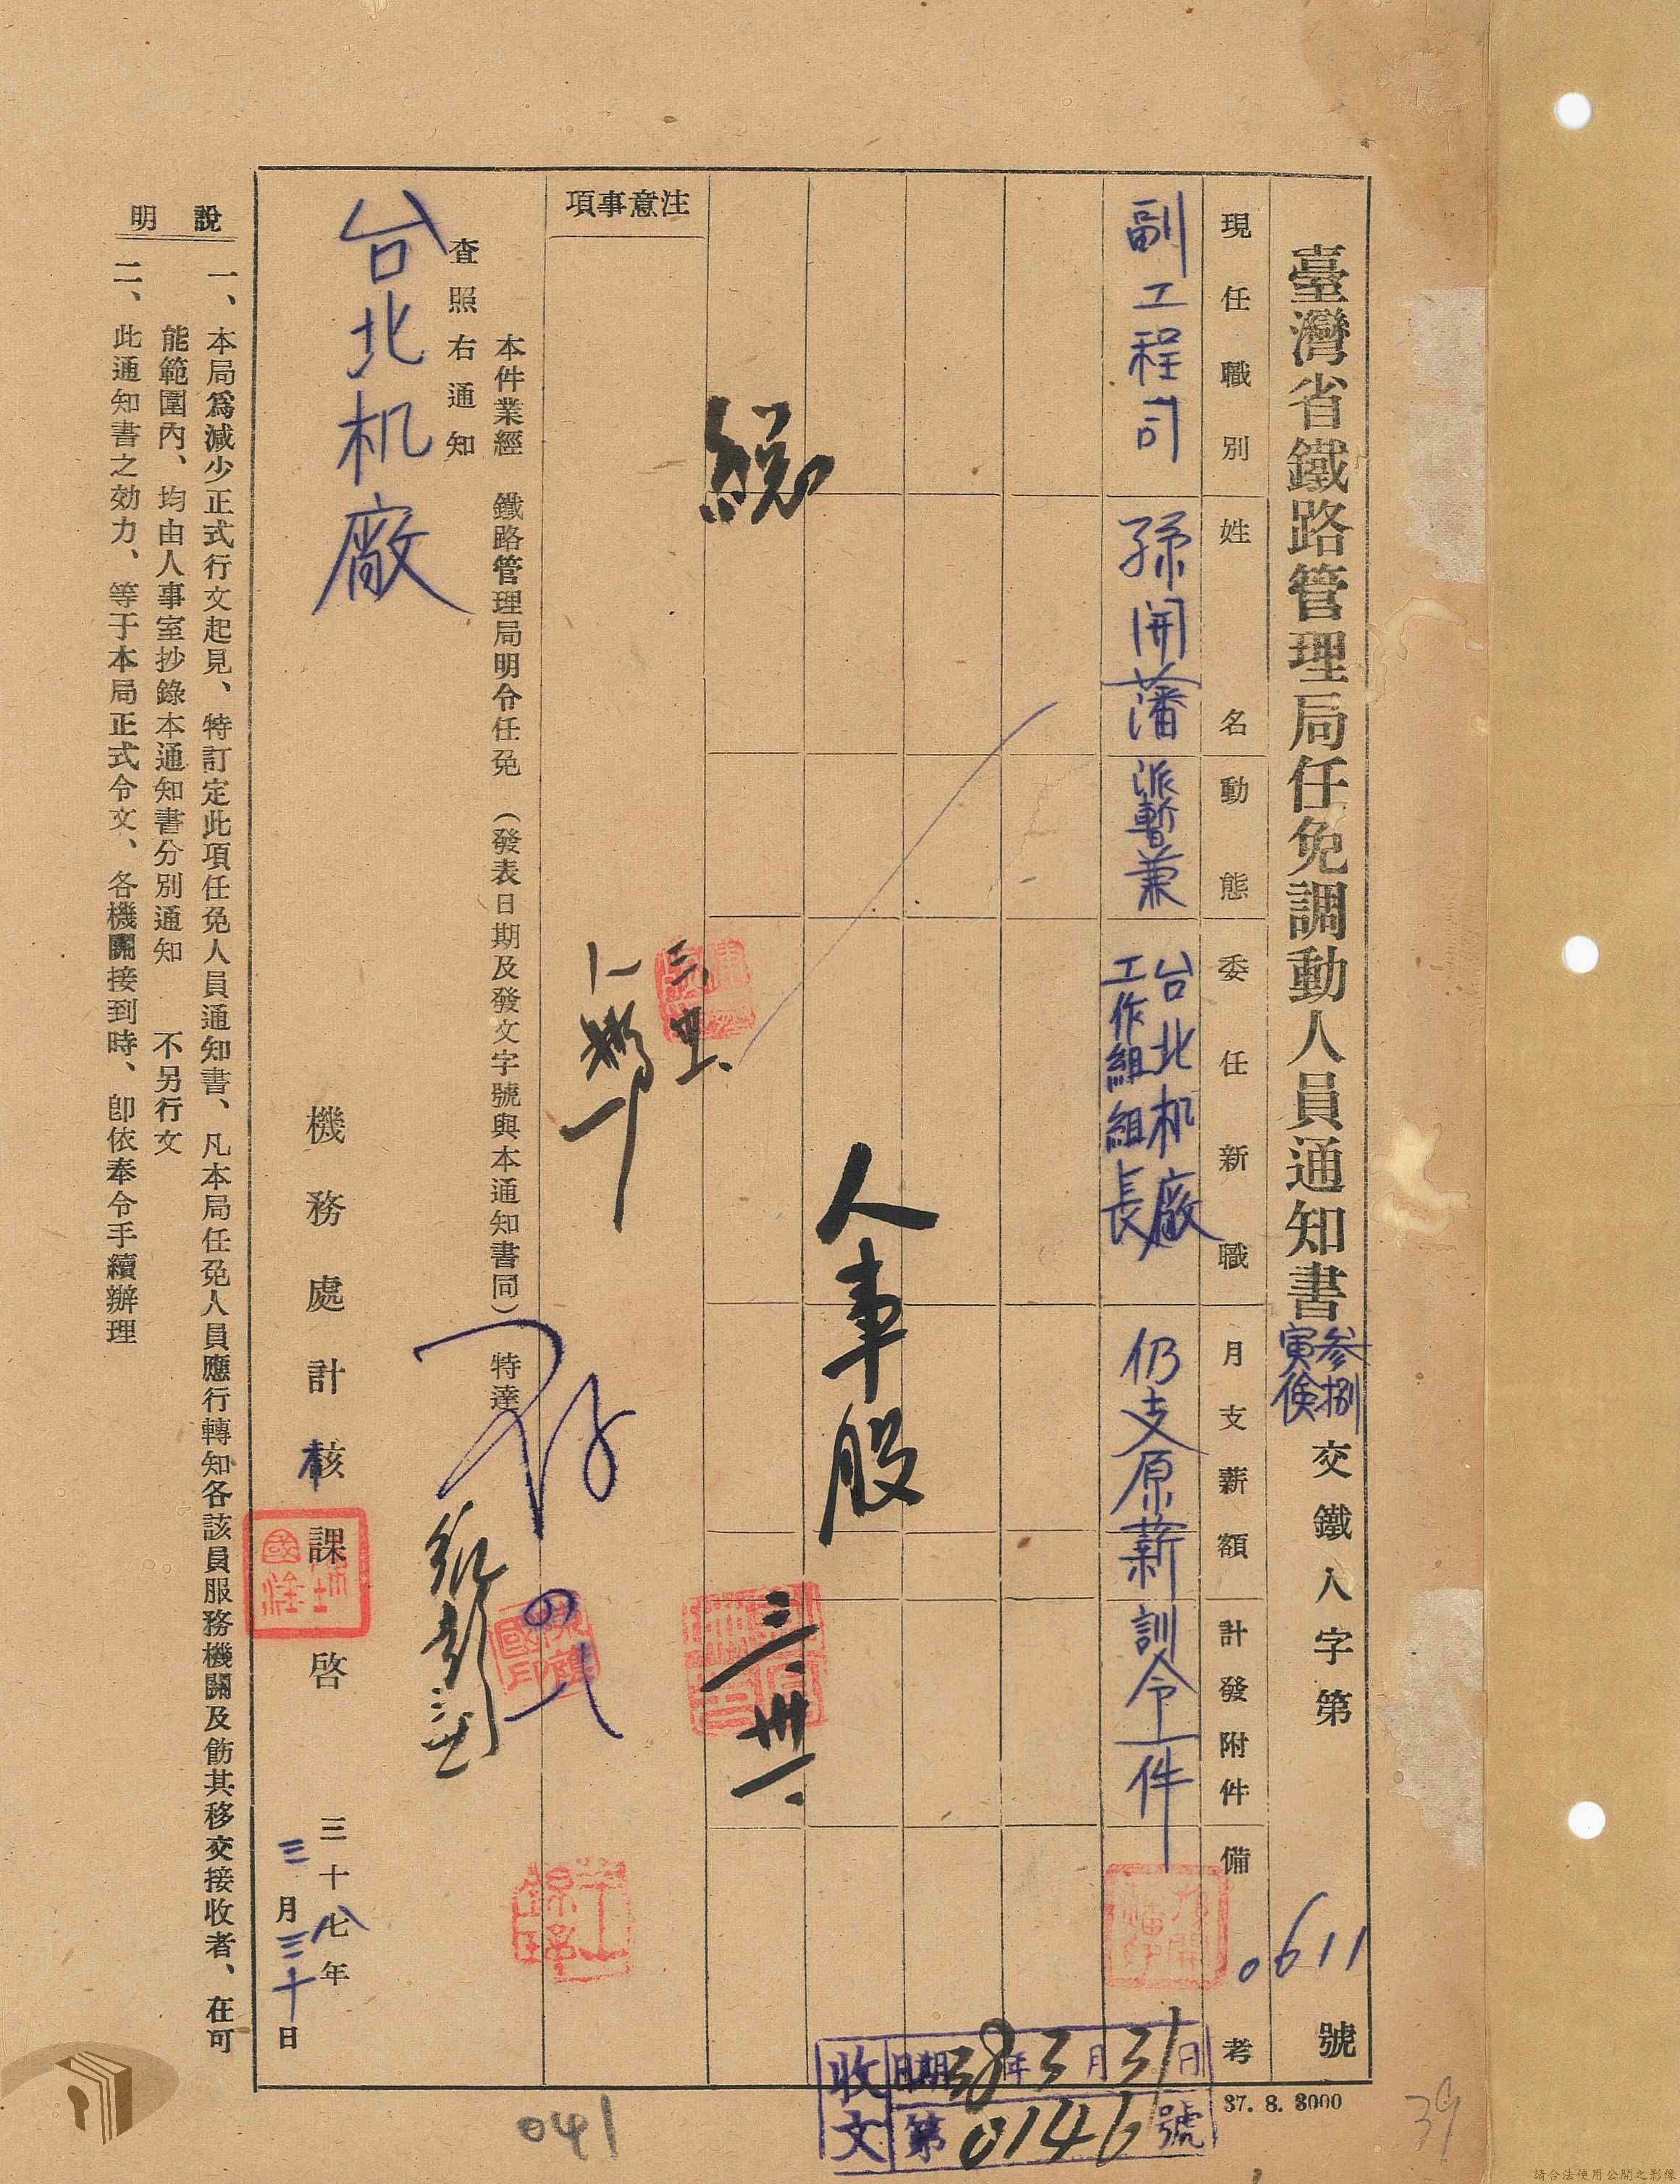 臺灣省鐵路管理局任免調動人員通知書
參捌
寅儉
交鐵人字第0611號
現任職別
姓名
動態
委任新職
月支薪額
計發附件
備考
副工程司
孫開藩
派暫兼
台北机廠
工作組組長
仍支原薪
訓令一件
人事股
三、卅一、
注意事項
本件業經 鐵路管理局明令任免 (發表日期及發文字號與本通知書同) 特達
查照右通知
台北机廠
機務處計核課啓
三十八年
三月三十日
說明
一、本局爲減少正式行文起見、特訂定此項任免人員通知書、凡本局任免人員應行轉知各該員服務機關及飭其移交接收者、在可
能範圍內、均由人事室抄錄本通知書分別通知 不另行文
二、此通知書之効力、等于本局正式令文、各機關接到時、卽依奉令手續辦理
收文
日期38年3月31日
第0146號
37. 8. 3000
041
39
請合法使用公開之影像